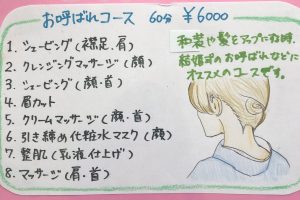 お呼ばれコース 60分 ¥6000
1. シェービング(襟足、肩)
2. クレンジングマッサージ(顔)
3. シェービング(顔・首)
4. 眉カット
5. クリームマッサージ(顔・首)
6. 引き締め化粧水マスク(顔)
7. 整肌(乳液仕上げ)
8. マッサージ(肩・首)
和装や髪をアップにする時、
結婚式のお呼ばれなどに
オススメのコースです。